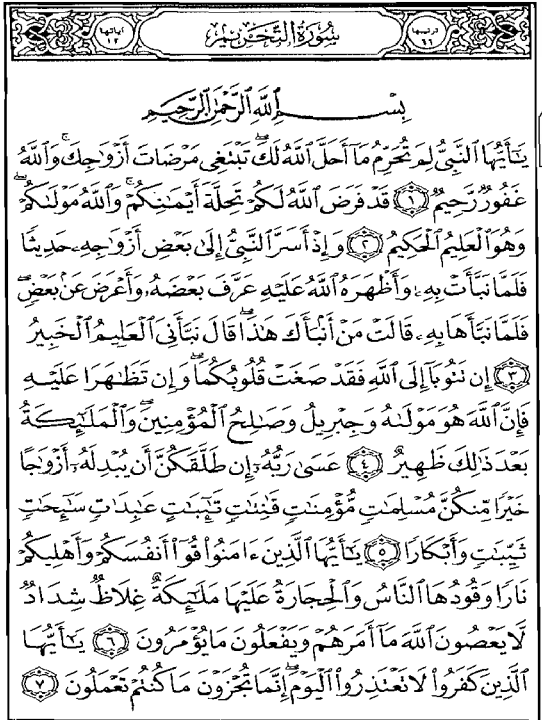 ترتيبها ٦٦ سُورَةُ التَّحْرِيمِ آياتها ١٢
بِسْمِ اللَّهِ الرَّحْمَٰنِ الرَّحِيمِ
يَٰٓأَيُّهَا ٱلنَّبِيُّ لِمَ تُحَرِّمُ مَآ أَحَلَّ ٱللَّهُ لَكَۖ تَبْتَغِى مَرْضَاتَ أَزْوَٰجِكَۚ وَٱللَّهُ
غَفُورٌ رَّحِيمٌ ﴿١﴾ قَدْ فَرَضَ ٱللَّهُ لَكُمْ تَحِلَّةَ أَيْمَٰنِكُمْۚ وَٱللَّهُ مَوْلَىٰكُمْۖ
وَهُوَ ٱلْعَلِيمُ ٱلْحَكِيمُ ﴿٢﴾ وَإِذْ أَسَرَّ ٱلنَّبِيُّ إِلَىٰ بَعْضِ أَزْوَٰجِهِۦ حَدِيثًا
فَلَمَّا نَبَّأَتْ بِهِۦ وَأَظْهَرَهُ ٱللَّهُ عَلَيْهِ عَرَّفَ بَعْضَهُۥ وَأَعْرَضَ عَنۢ بَعْضٍۖ
فَلَمَّا نَبَّأَهَا بِهِۦ قَالَتْ مَنْ أَنۢبَأَكَ هَٰذَاۖ قَالَ نَبَّأَنِىَ ٱلْعَلِيمُ ٱلْخَبِيرُ
﴿٣﴾ إِن تَتُوبَآ إِلَى ٱللَّهِ فَقَدْ صَغَتْ قُلُوبُكُمَاۖ وَإِن تَظَٰهَرَا عَلَيْهِ
فَإِنَّ ٱللَّهَ هُوَ مَوْلَىٰهُ وَجِبْرِيلُ وَصَٰلِحُ ٱلْمُؤْمِنِينَۖ وَٱلْمَلَٰٓئِكَةُ
بَعْدَ ذَٰلِكَ ظَهِيرٌ ﴿٤﴾ عَسَىٰ رَبُّهُۥٓ إِن طَلَّقَكُنَّ أَن يُبْدِلَهُۥٓ أَزْوَٰجًا
خَيْرًا مِّنكُنَّ مُسْلِمَٰتٍ مُّؤْمِنَٰتٍ قَٰنِتَٰتٍ تَٰٓئِبَٰتٍ عَٰبِدَٰتٍ سَٰٓئِحَٰتٍ
ثَيِّبَٰتٍ وَأَبْكَارًا ﴿٥﴾ يَٰٓأَيُّهَا ٱلَّذِينَ ءَامَنُوا۟ قُوٓا۟ أَنفُسَكُمْ وَأَهْلِيكُمْ
نَارًا وَقُودُهَا ٱلنَّاسُ وَٱلْحِجَارَةُ عَلَيْهَا مَلَٰٓئِكَةٌ غِلَاظٌ شِدَادٌ
لَّا يَعْصُونَ ٱللَّهَ مَآ أَمَرَهُمْ وَيَفْعَلُونَ مَا يُؤْمَرُونَ ﴿٦﴾ يَٰٓأَيُّهَا
ٱلَّذِينَ كَفَرُوا۟ لَا تَعْتَذِرُوا۟ ٱلْيَوْمَۖ إِنَّمَا تُجْزَوْنَ مَا كُنتُمْ تَعْمَلُونَ ﴿٧﴾